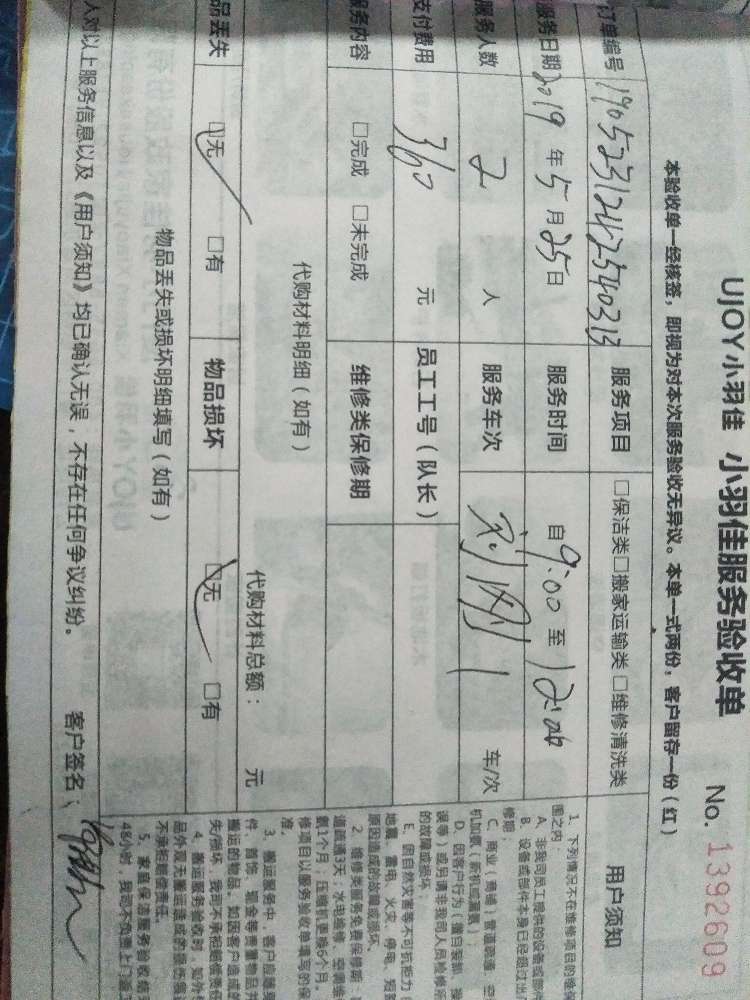 UJOY小羽佳 小羽佳服务验收单 No. 1392609
本验收单一经核签，即视为对本次服务验收无异议。本单一式两份，客户留存一份（红）
订单编号 服务项目 □保洁类□搬家运输类 □维修清洗类
服务日期 2019年5月25日 服务时间 自9:00至
服务人数 2人 服务车次 车/次
支付费用 360元 员工工号（队长）
服务内容 □完成 □未完成 维修类保修期
代购材料明细（如有）
代购材料总额： 元
品丢失 ☑无 □有 物品损坏 ☑无 □有
物品丢失或损坏明细填写（如有）
人对以上服务信息以及《用户须知》均已确认无误，不存在任何争议纠纷。 客户签名：
用户须知
1、下列情况不在维修项目的维
围之内：
A、非我司员工提供的设备或部
B、设备或部件本身已经超过出
修期；
C、商业（商铺）管道疏通、空
D、因客户行为（擅自装卸、操
误等）或另请非我司人员检修所
的故障或损坏；
E、因自然灾害等不可抗拒力（
地震、雷电、火灾、停电、短
原因造成的故障或损坏。
2、维修类服务免费保修期：
道疏通3天；水电维修、空调
氨1个月；压缩机更换6个月。
修项目以服务验收单填写的保
准。
3、搬运服务中，客户应随
件、首饰、现金等贵重物品并
搬运的物品，如因客户造成的
失/损坏，我司不承担赔偿责任
4、搬运服务验收时，如外
品外观无搬运造成的损伤
不承担赔偿责任。
5、家庭保洁服务验收
48小时，我司不负责上门